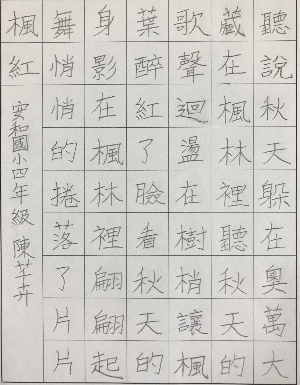 聽說秋天躲在奧萬大
藏在楓林裡聽秋天的
歌聲迴盪在樹梢讓楓
葉醉紅了臉看秋天的
身影在楓林裡翩翩起
舞悄悄的捲落了片片
楓紅 安和國小四年級 陳芊卉